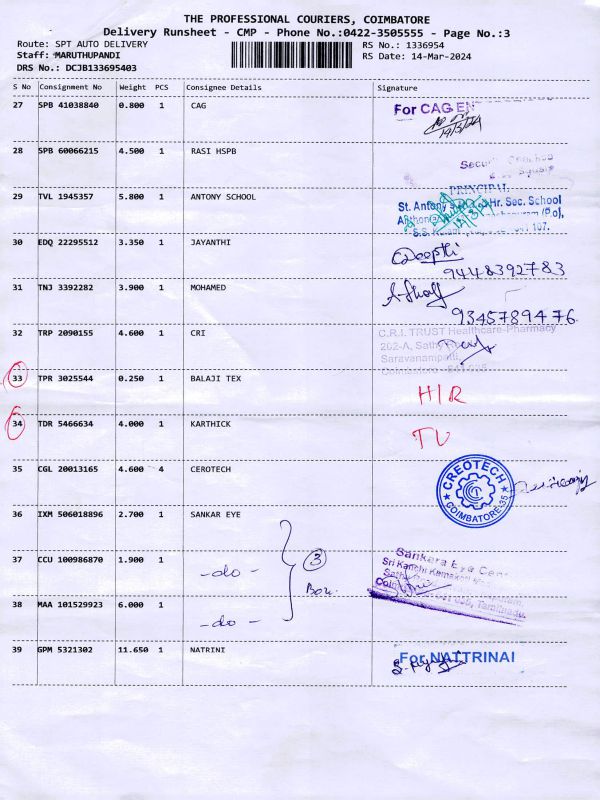 THE PROFESSIONAL COURIERS, COIMBATORE
Delivery Runsheet - CMP - Phone No.:0422-3505555 - Page No.:3
Route: SPT AUTO DELIVERY RS No.: 1336954
Staff: MARUTHUPANDI RS Date: 14-Mar-2024
DRS No.: DCJB133695403
S No Consignment No Weight PCS Consignee Details Signature
27 SPB 41038840 0.800 1 CAG For CAG EN
28 SPB 60066215 4.500 1 RASI HSPB
29 TVL 1945357 5.800 1 ANTONY SCHOOL PRINCIPAL
St. Antony Hr. Sec. School
30 EDQ 22295512 3.350 1 JAYANTHI Deepthi
9448392783
31 TNJ 3392282 3.900 1 MOHAMED
9345789476
32 TRP 2090155 4.600 1 CRI C.R.I. TRUST Healthcare-Pharmacy
202-A, Sathy
Saravanampatti,
Coimbatore
33 TPR 3025544 0.250 1 BALAJI TEX H/R
34 TDR 5466634 4.000 1 KARTHICK TV
35 CGL 20013165 4.600 4 CEROTECH CREOTECH
COIMBATORE-35
36 IXM 506018896 2.700 1 SANKAR EYE
37 CCU 100986870 1.900 1 -do- 3 Box. Sankara Eye Cen
Sri Kanchi Kamakoti
Tamilnadu.
38 MAA 101529923 6.000 1 -do-
39 GPM 5321302 11.650 1 NATRINI For NATTRINAI